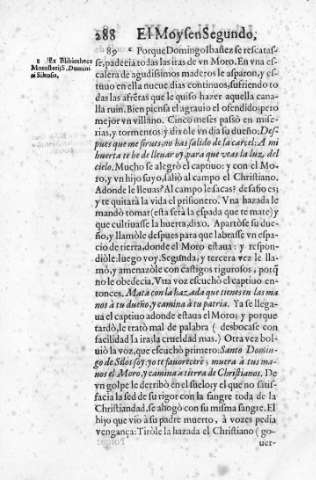 288 El Moysen Segundo,
89 ᶜ Porque Domingo Ibañez se rescatas-
1 Ex Bibliotheca
Monasterij S. Domini-
ci Silensis.
se, padecia todas las iras de vn Moro. En vna es-
calera de agudissimos maderos le asparon, y es-
tuuo en ella nueue dias continuos, sufriendo to
das las afrētas que le quiso hazer aquella cana-
lla ruin. Bien piensa el agrauio el ofendido: pero
mejor vn villano. Cinco meses passò en mise-
rias, y tormentos, y dixole vn dia su dueño: Des-
pues que me siruesno has salido de la carcel: A mi
huerta te he de lleuar oy, para que veas la luz, del
cielo. Mucho se alegrò el captiuo: y con el Mo-
ro, y vn hijo suyo, salió al campo el Christiano.
Adonde le lleuas? Al campo le sacas? desafio es;
y te quitarà la vida el prisionero. Vna hazada le
mandò tomar (esta serà la espada que te mate) y
que cultiuasse la huerta, dixo. Apartòse su due-
ño, y llamòle despues para que labrasse vn espa-
cio de tierra, donde el Moro estaua: y respon-
diòle, luego voy. Segunda, y tercera vez le lla-
mò, y amenazòle con castigos rigurosos, porq̄
no le obedecia. Vna voz escuchò el captiuo en-
tonces. Mata con la hazada que tienes en las ma
nos à tu dueño, y camina à tu patria. Ya se llega-
ua el captiuo adonde estaua el Moro; y porque
tardò, le tratò mal de palabra ( desbocase con
facilidad la ira: la crueldad mas.) Otra vez bol-
uiò la voz, que escuchò primero: Santo Domin-
go de Silos soy, yo te fauorecerè; muera à tus ma-
nos el Moro, y camina à tierra de Christianos. De
vn golpe le derribò en el suelo: y el que no satis-
facia la sed de su rigor con la sangre toda de la
Christiandad, se ahogò con su misma sangre. El
hijo que viò a su padre muerto, à vozes pedia
vengança: Tiròle la hazada el Christiano ( go-
uer-